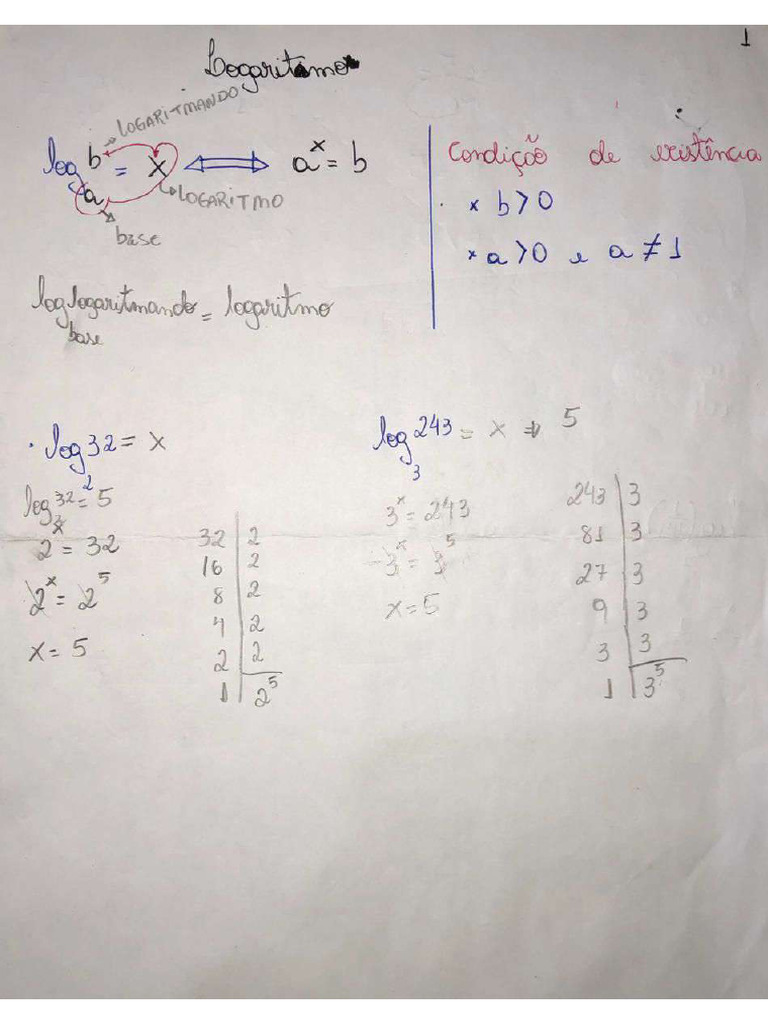 1
Logaritmo
LOGARITMANDO
log_a b = x ⟺ a^x = b
LOGARITMO
base
log_base logaritmando = logaritmo
Condição de existência
× b > 0
× a > 0 e a ≠ 1
· log_2 32 = x
log_2 32 = 5
2^x = 32
2^x = 2^5
x = 5
32 | 2
16 | 2
8 | 2
4 | 2
2 | 2
1 | 2^5
log_3 243 = x ⇒ 5
3^x = 243
3^x = 3^5
x = 5
243 | 3
81 | 3
27 | 3
9 | 3
3 | 3
1 | 3^5